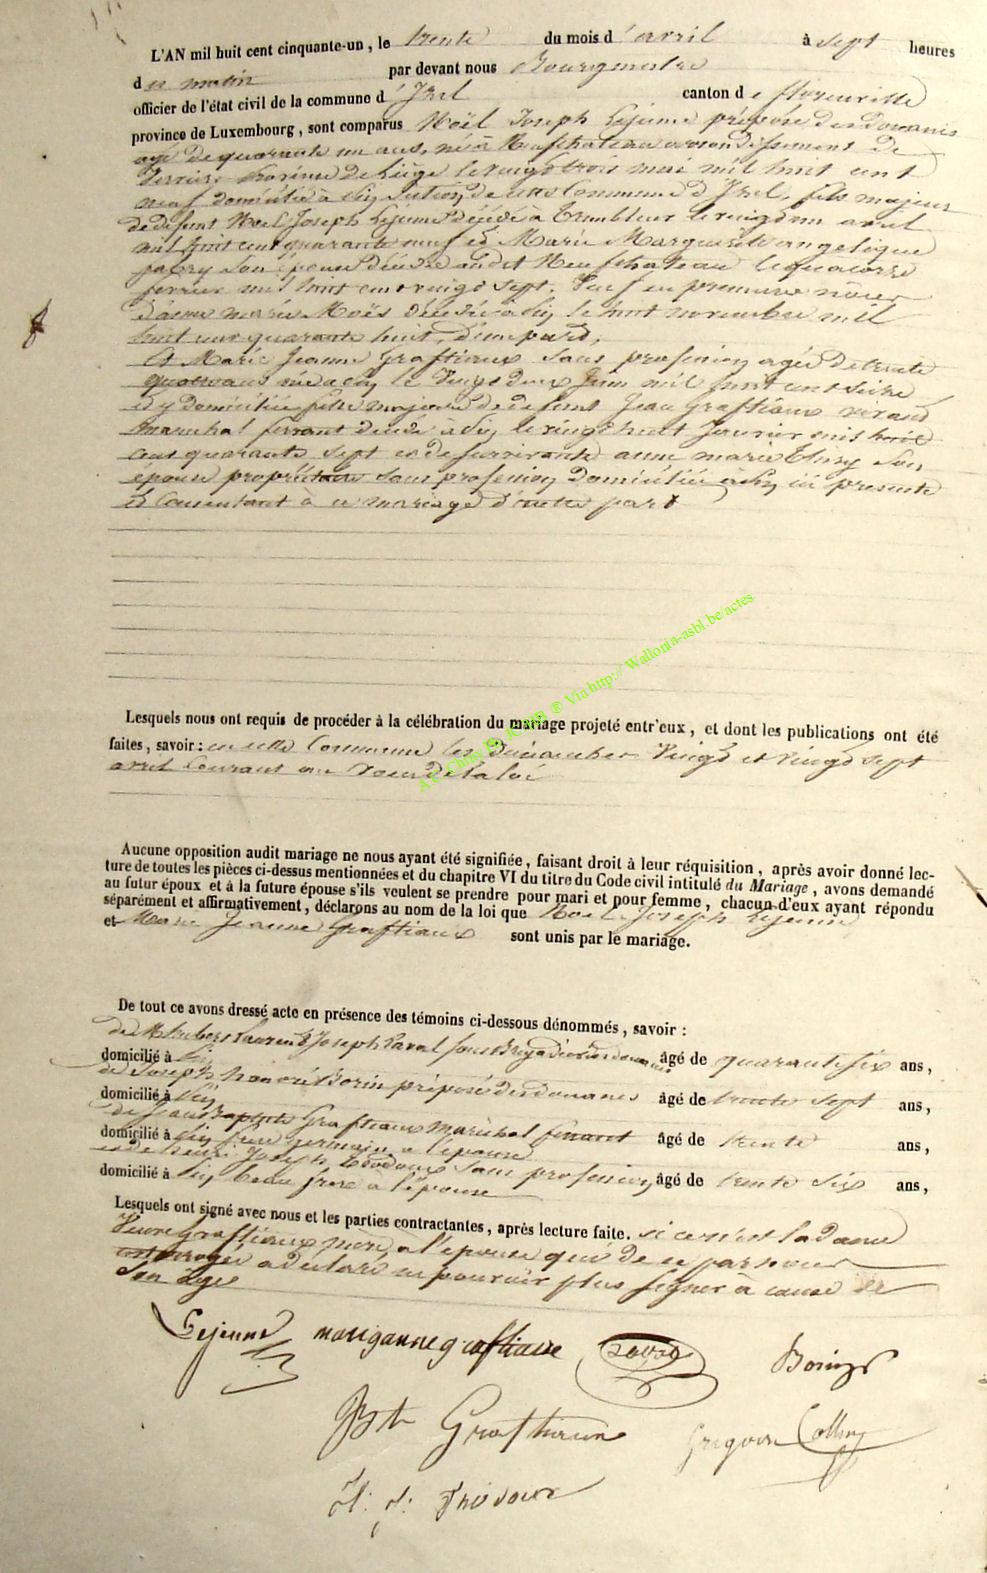 L'AN mil huit cent cinquante-un, le trente du mois d'avril à sept heures
du matin par devant nous Bourgmestre
officier de l'état civil de la commune d'Izel canton de florenville
province de Luxembourg, sont comparus Noël Joseph Lejeune préposé des douanes
agé de quarante un ans, né à Neufchateau arrondissement de
Verviers province de Liège le vingt trois mai mil huit cent
neuf domicilié à section de cette Commune d'Izel, fils majeur
de defunt Noel Joseph Lejeune décédé à Trembleur le vingt un avril
mil huit cent quarante neuf et Marie Marguerite angelique
fabry son épouse décédée audit Neufchateau le quatorze
fevrier mil huit cent vingt sept. Veuf en premiere noces
marie Moës décédée à le huit novembre mil
huit cent quarante huit, d'une part,
Et Marie Jeanne Graftiaux sans profession agée de trente
quatre ans née à le vingt deux Juin mil huit cent seize
et y domiciliée fille majeure de defunt Jean Graftiaux
marechal ferrant décédé à le vingt huit Janvier mil huit
cent quarante sept et de survivante anne marie son
épouse propriétaire sans profession domiciliée à ici presente
et Consentant à ce mariage d'autre part
Lesquels nous ont requis de procéder à la célébration du mariage projeté entr'eux, et dont les publications ont été
faites, savoir: en cette Commune les dimanches Vingt et vingt sept
avril Courant au voeu de la loi
Aucune opposition audit mariage ne nous ayant été signifiée, faisant droit à leur réquisition, après avoir donné lec-
ture de toutes les pièces ci-dessus mentionnées et du chapitre VI du titre du Code civil intitulé du Mariage, avons demandé
au futur époux et à la future épouse s'ils veulent se prendre pour mari et pour femme, chacun d'eux ayant répondu
séparément et affirmativement, déclarons au nom de la loi que Noel Joseph Lejeune
et Marie Jeanne Graftiaux sont unis par le mariage.
De tout ce avons dressé acte en présence des témoins ci-dessous dénommés, savoir :
de Hubert Laurent Joseph Laval sous Brigadier des douanes âgé de quarante six ans,
domicilié à
de Joseph honoré Borin préposé des douanes âgé de trente sept ans,
domicilié à
de Jean Baptiste Graftiaux maréchal ferrant âgé de trente ans,
domicilié à frere germain a l'épouse
et de henri Joseph sans profession âgé de trente six ans,
domicilié à beau frere a l'épouse
Lesquels ont signé avec nous et les parties contractantes, après lecture faite. si ce n'est la dame
Veuve Graftiaux mère, à l'épouse qui de ce par nous
a déclaré ne pouvoir plus signer à cause de
Son age
Lejeune mariganne graftiaux Laval Borin
Bte Graftiaux Gregoire Collin
H. J.
A C Chiny Via http:// Wallonia-asbl.be/actes